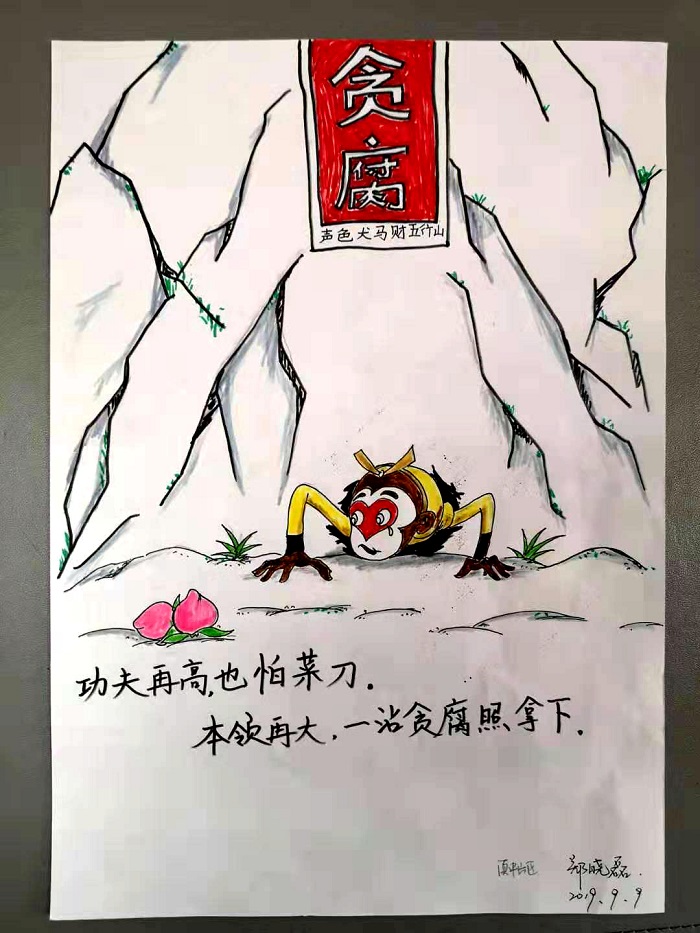 贪
腐
声色犬马财五行山
功夫再高,也怕菜刀.
本领再大,一沾贪腐照拿下.
郑晓磊.
2019.9.9